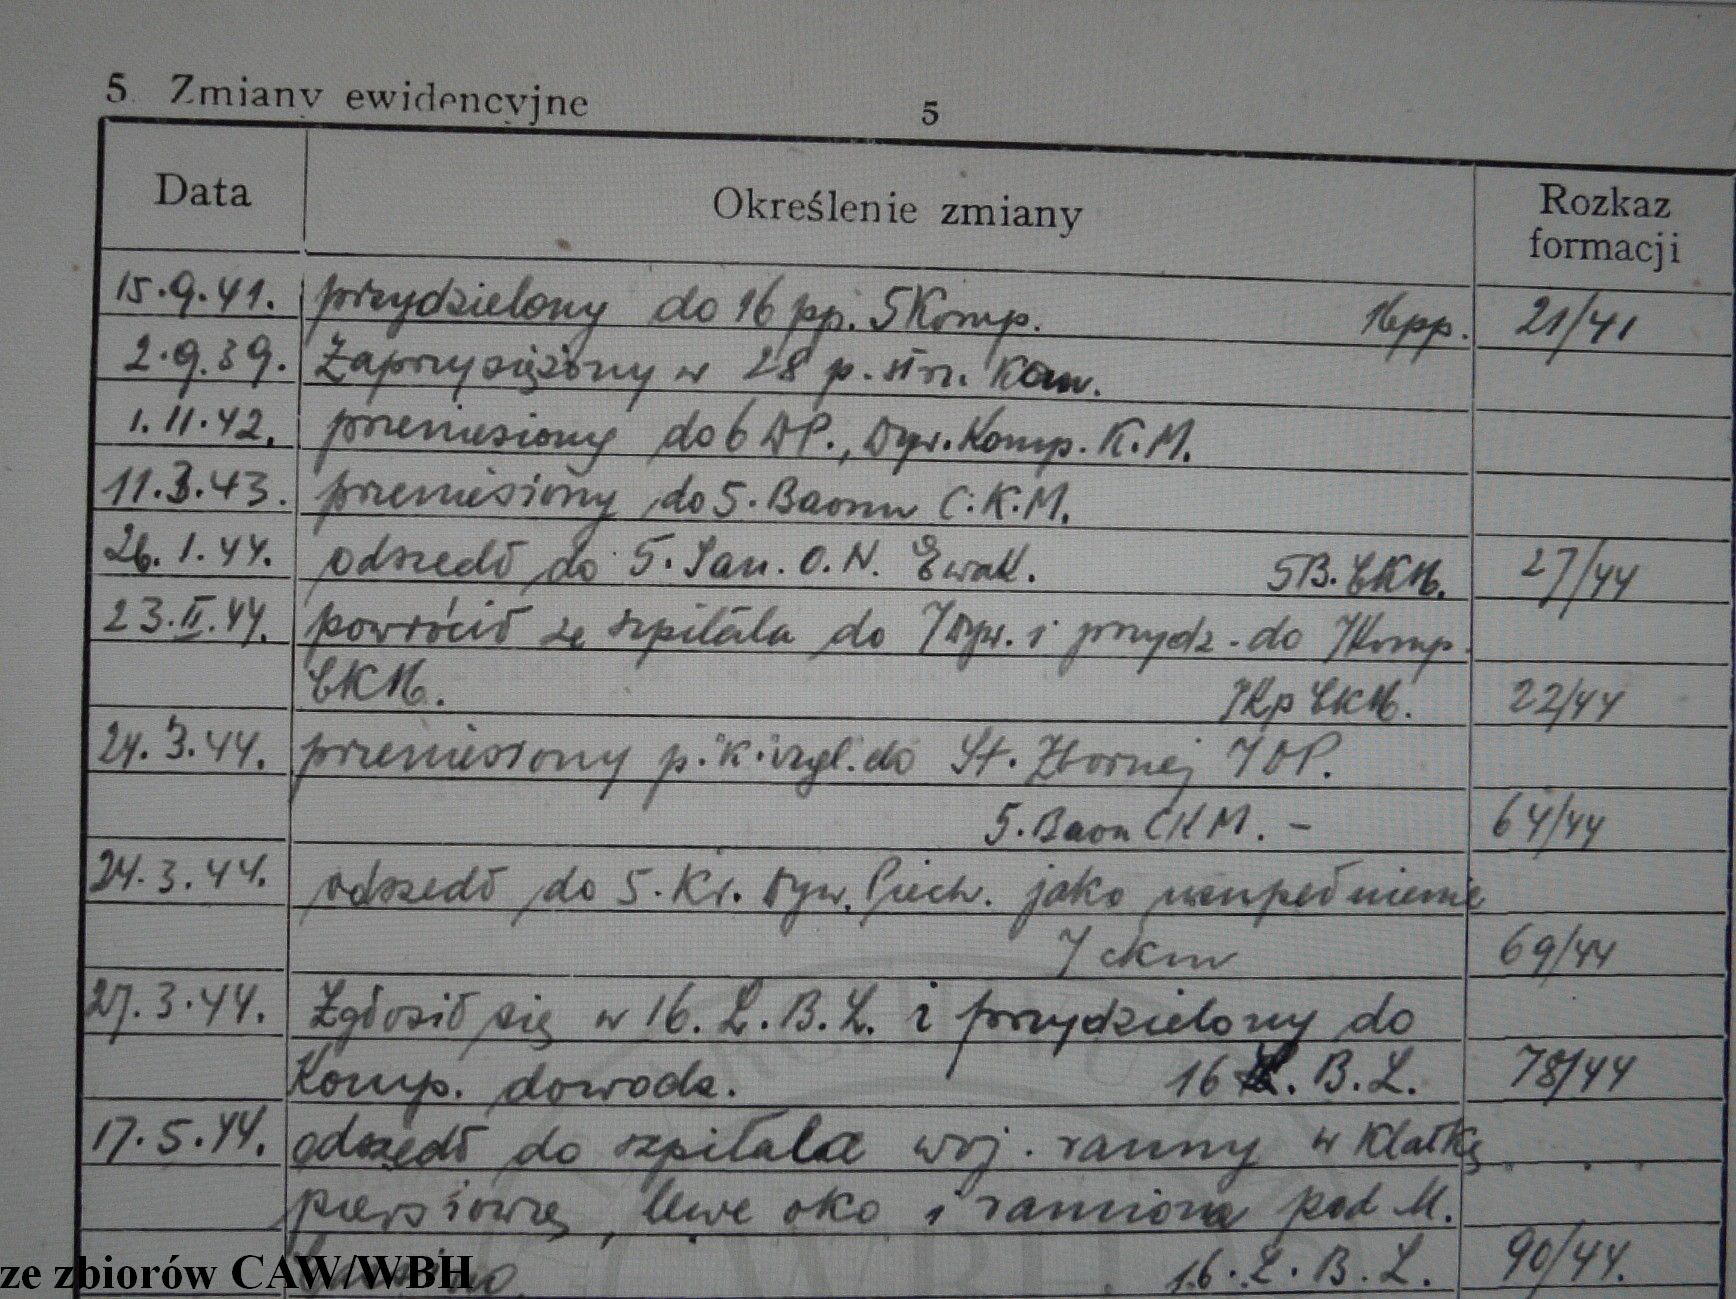 5 Zmiany ewidencyjne 5
Data Określenie zmiany Rozkaz formacji
15.9.41. przydzielony do 16 pp. 5 Komp. 16pp. 21/41
2.9.39. Zaprzysiężony w 28 p. str. Kaw.
1.11.42. przeniesiony do 6 DP., Dyw. Komp. K.M.
11.3.43. przeniesiony do 5. Baonu C.K.M.
26.1.44. odszedł do 5. San. O.N. Ewak. 5B. CKM. 27/44
23.II.44. powrócił ze szpitala do 7 Dyw. i przydz. do 7 Komp.
CKM. 7Kp CKM. 22/44
24.3.44. przeniesiony p.k. do St. Zbornej 7 DP.
5. Baon CKM. - 64/44
24.3.44. odszedł do 5. Kr. Dyw. Piech. jako uzupełnienie
7 ckm 69/44
27.3.44. Zgłosił się w 16. L.B.L. i przydzielony do
Komp. dowodz. 16 L.B.L. 78/44
17.5.44. odszedł do szpitala woj. ranny w klatkę
piersiową, lewe oko i ramiona pod M.
16.L.B.L. 90/44.
ze zbiorów CAW/WBH